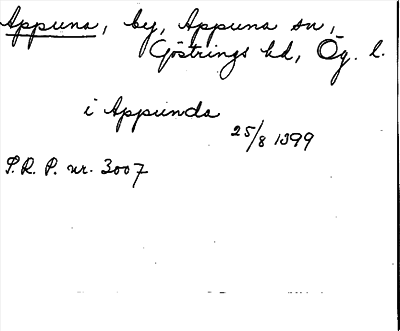 Appuna, by, Appuna sn,
Göstrings hd, Ög. l.
i Appunda
25/8 1399
S.R.P. nr. 3007